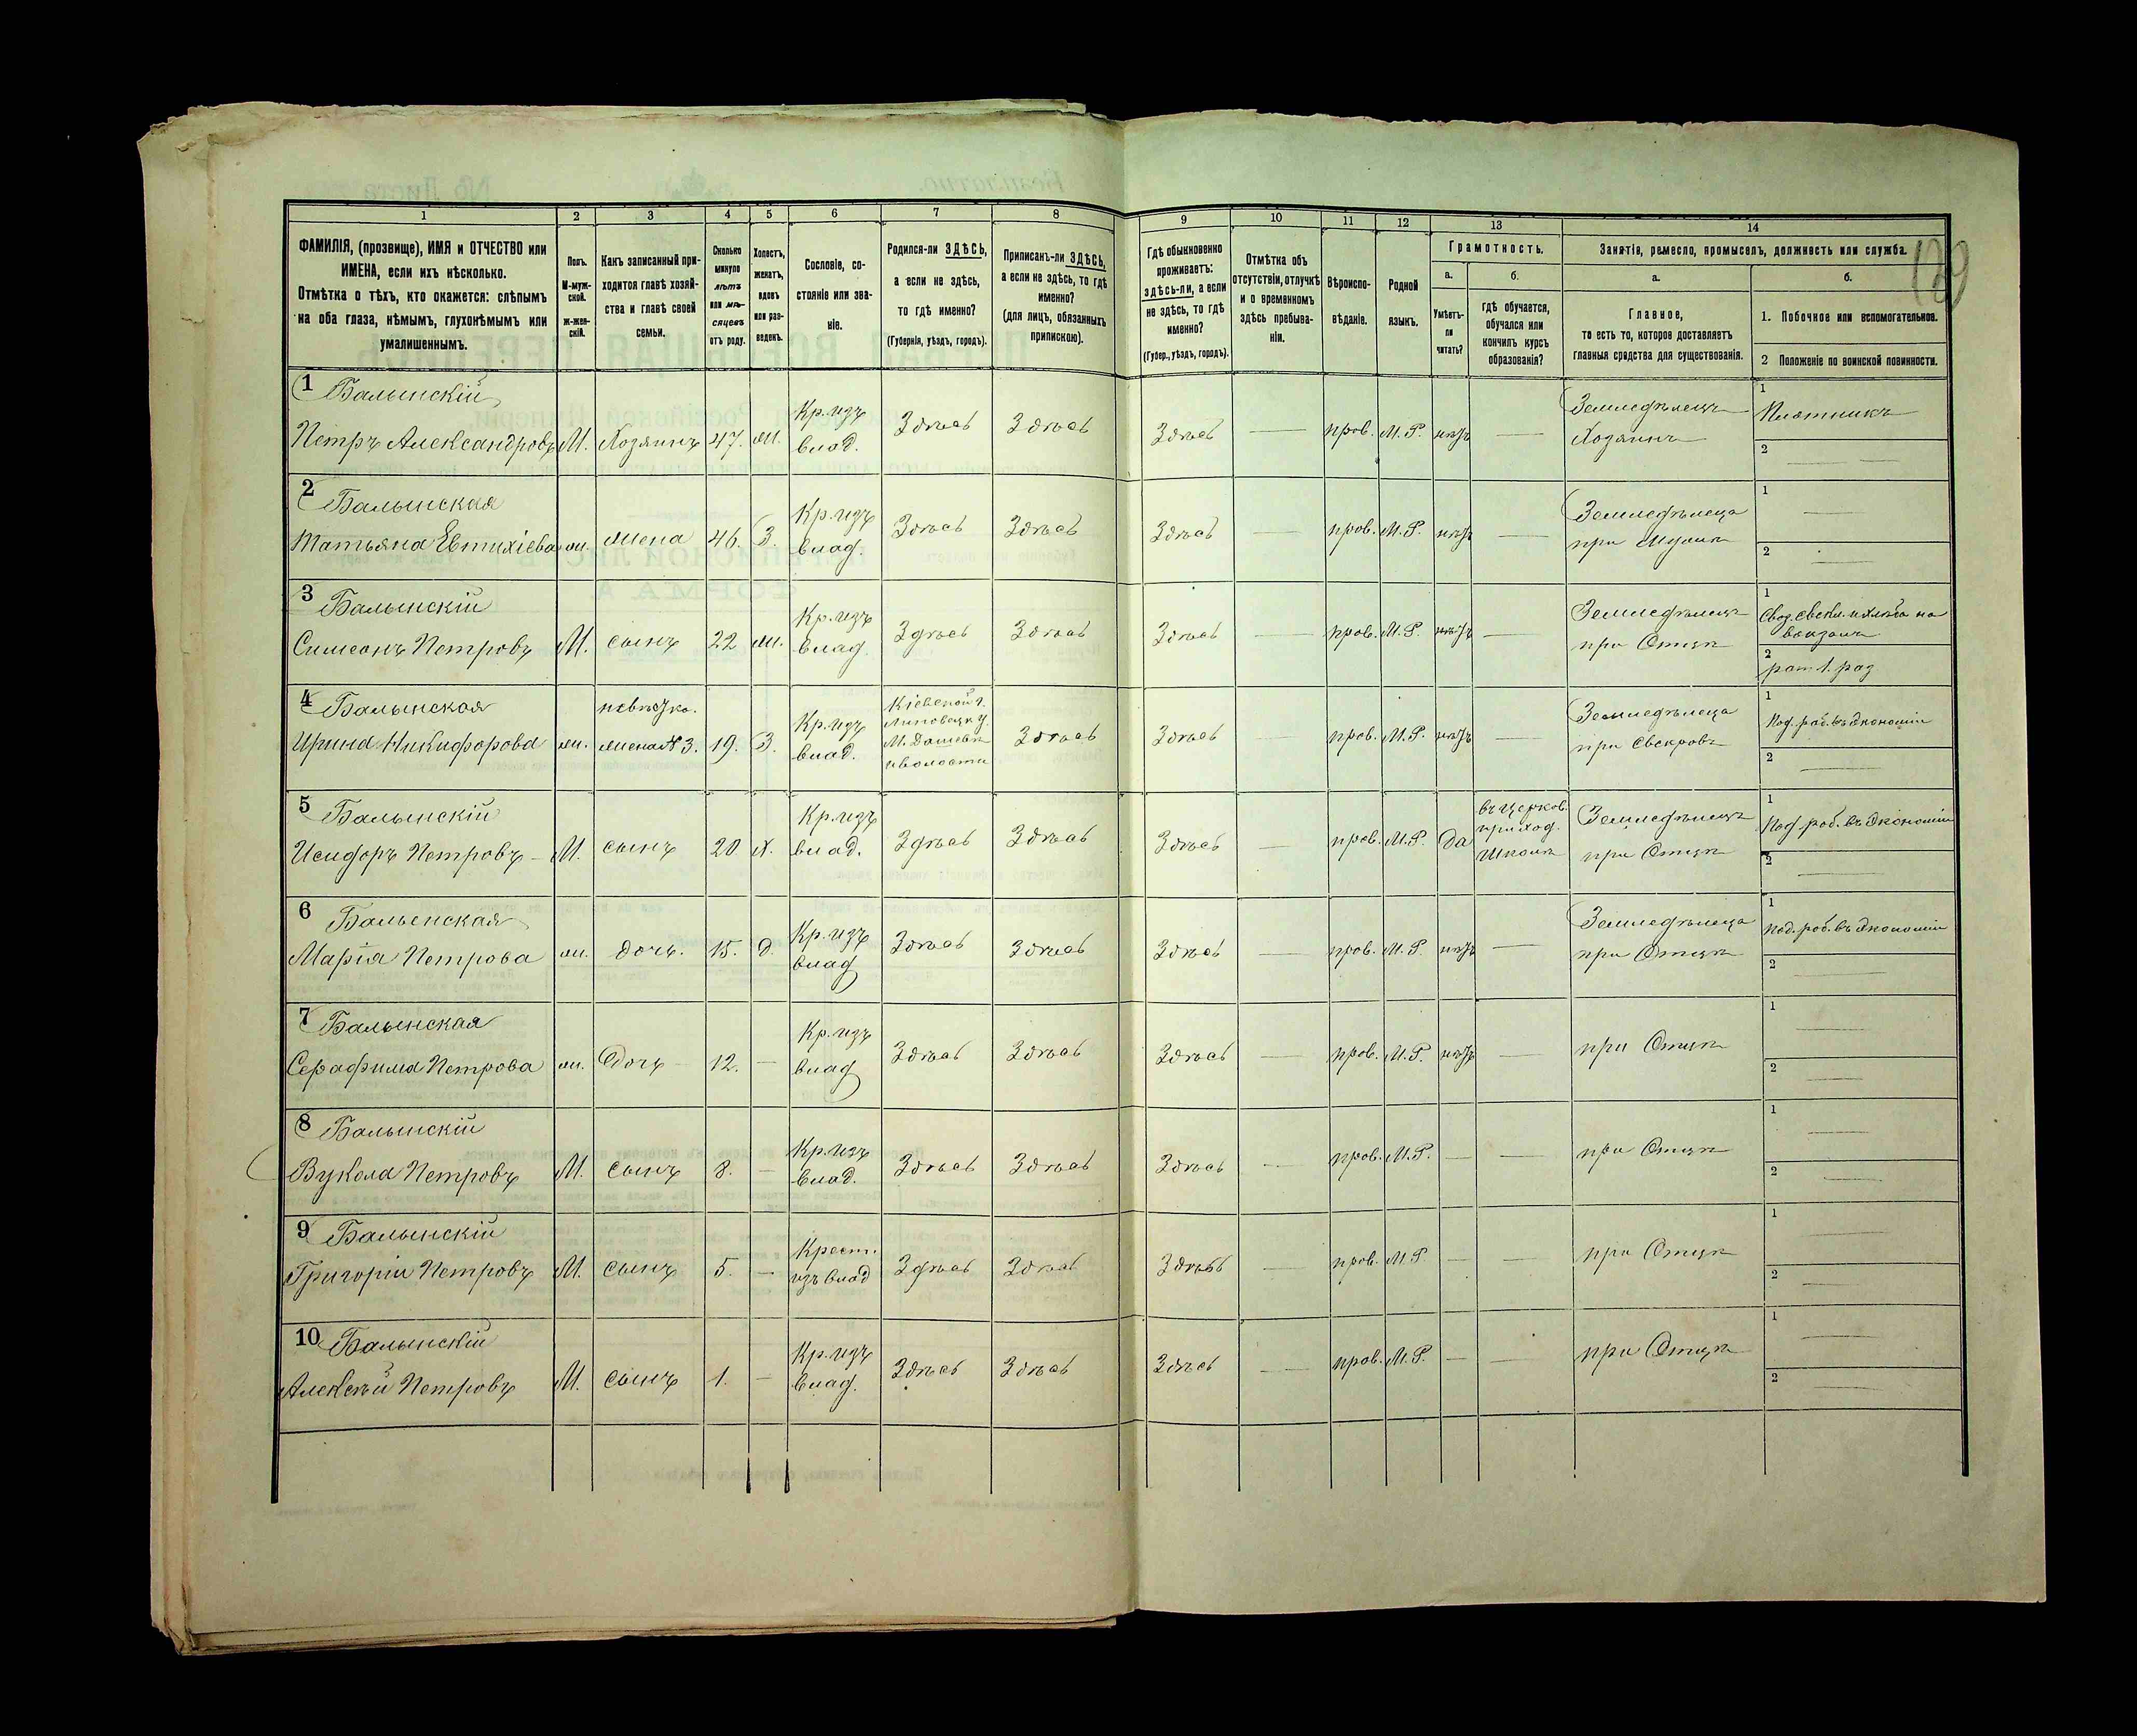 1 2 3 4 5 6 7 8 9 10 11 12 13 14
ФАМИЛІЯ, (прозвище), ИМЯ и ОТЧЕСТВО или
ИМЕНА, если ихъ нѣсколько.
Отмѣтка о тѣхъ, кто окажется: слѣпымъ
на оба глаза, нѣмымъ, глухонѣмымъ или
умалишеннымъ.
Полъ.
М-муж-
ской.
ж-жен-
скій.
Какъ записанный при-
ходится главѣ хозяй-
ства и главѣ своей
семьи.
Сколько
минуло
лѣтъ
или мѣ-
сяцевъ
отъ роду.
Холостъ,
женатъ,
вдовъ
или раз-
веденъ.
Сословіе, со-
стояніе или зва-
ніе.
Родился-ли ЗДѢСЬ,
а если не здѣсь,
то гдѣ именно?
(Губернія, уѣздъ, городъ).
Приписанъ-ли ЗДѢСЬ,
а если не здѣсь, то гдѣ
именно?
(для лицъ, обязанныхъ
припискою).
Гдѣ обыкновенно
проживаетъ:
здѣсь-ли, а если
не здѣсь, то гдѣ
именно?
(Губер., уѣздъ, городъ).
Отмѣтка объ
отсутствіи, отлучкѣ
и о временномъ
здѣсь пребыва-
ніи.
Вѣроиспо-
вѣданіе.
Родной
языкъ.
Грамотность.
а.
Умѣетъ-
ли
читать?
б.
Гдѣ обучается,
обучался или
кончилъ курсъ
образованія?
Занятіе, ремесло, промыселъ, должность или служба.
а.
Главное,
то есть то, которое доставляетъ
главныя средства для существованія.
б.
1. Побочное или вспомогательное.
2 Положеніе по воинской повинности.
129
1 Балынскій
Петръ Александровъ М. Хозяинъ 47. Ж. Кр. изъ
влад. Здѣсь Здѣсь Здѣсь — пров. М.Р. нѣтъ — Земледѣлецъ
Хозяинъ
1 Плотникъ
2 —
2 Балынская
Татьяна Евтихіева ж. жена 46. З. Кр. изъ
влад. Здѣсь Здѣсь Здѣсь — пров. М.Р. нѣтъ — Земледѣлица
при мужѣ
1 —
2 —
3 Балынскій
Симеонъ Петровъ М. сынъ 22 Ж. Кр. изъ
влад. Здѣсь Здѣсь Здѣсь — пров. М.Р. нѣтъ — Земледѣлецъ
при Отцѣ
1 на
вокзалъ
2 рат. 1. раз
4 Балынская
Ирина Никифорова ж. невѣстка.
жена №3. 19. З. Кр. изъ
влад. Кіевской г.
Липовецк. у.
М. Дашевъ
и волости
Здѣсь Здѣсь — пров. М.Р. нѣтъ — Земледѣлица
при Свекровѣ
1 Под. раб. въ Экономіи
2 —
5 Балынскій
Исидоръ Петровъ М. сынъ 20 Х. Кр. изъ
влад. Здѣсь Здѣсь Здѣсь — пров. М.Р. да въ церков.
приход.
школѣ
Земледѣлецъ
при Отцѣ
1 Под. раб. въ Экономіи
2 —
6 Балынская
Марія Петрова ж. дочь. 15. Д. Кр. изъ
влад Здѣсь Здѣсь Здѣсь — пров. М.Р. нѣтъ — Земледѣлица
при Отцѣ
1 под. раб. въ Экономіи
2 —
7 Балынская
Серафима Петрова ж. Дочь 12. — Кр. изъ
влад Здѣсь Здѣсь Здѣсь — пров. М.Р. нѣтъ — при Отцѣ
1 —
2 —
8 Балынскій
Вукола Петровъ М. сынъ 8. — Кр. изъ
влад. Здѣсь Здѣсь Здѣсь — пров. М.Р. — — при Отцѣ
1 —
2 —
9 Балынскій
Григорій Петровъ М. сынъ 5. — Крест.
изъ влад Здѣсь Здѣсь Здѣсь — пров. М.Р. — — при Отцѣ
1 —
2 —
10 Балынскій
Алексѣй Петровъ М. сынъ 1. — Кр. изъ
влад. Здѣсь Здѣсь Здѣсь — пров. М.Р. — — при Отцѣ
1 —
2 —